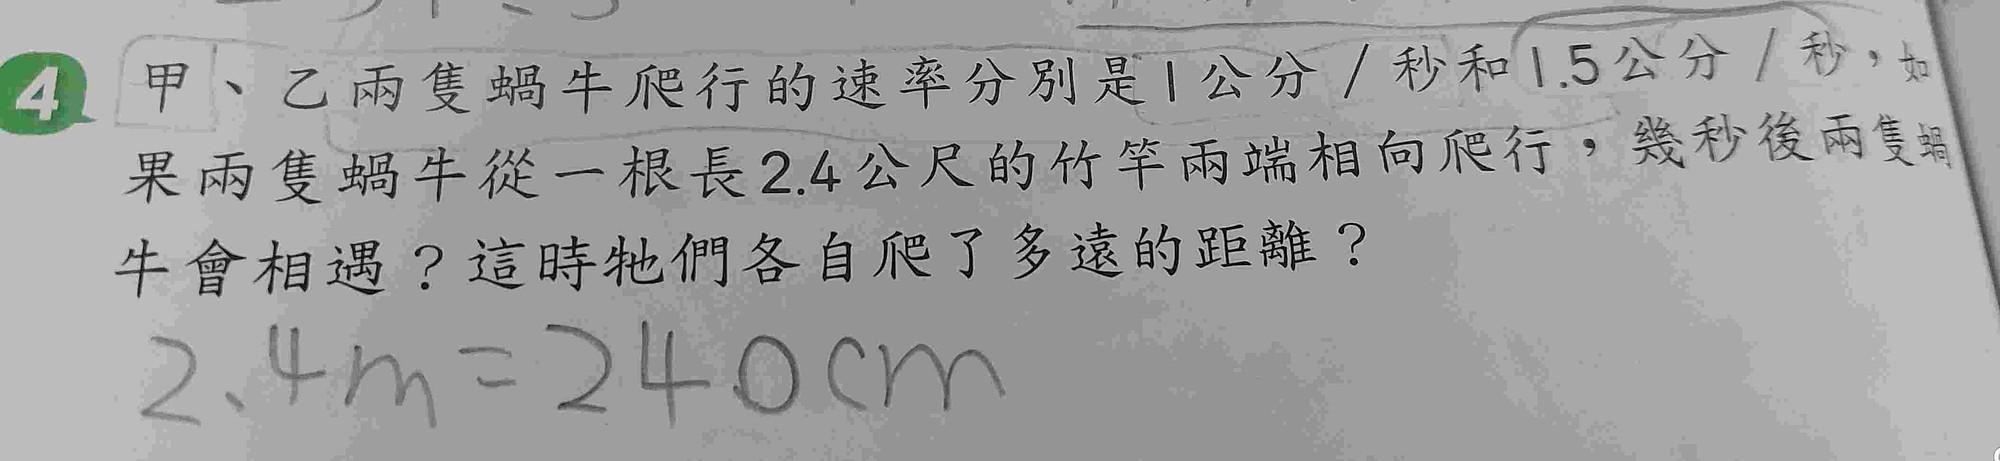 4 甲、乙兩隻蝸牛爬行的速率分別是1公分/秒和1.5公分/秒，如
果兩隻蝸牛從一根長2.4公尺的竹竿兩端相向爬行，幾秒後兩隻蝸
牛會相遇？這時牠們各自爬了多遠的距離？
2.4m=240cm